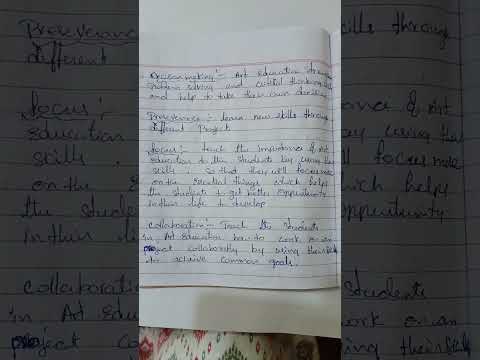 Decision making :- Art Education through
problem solving and critical thinking skills
and help to take their own decision
Preseverance :- learn new skills through
different Project
focus :- teach the importance of Art
education to the students by using their
skills. So that they will focus more
on the essential things which helps
the students to get better oppurtunity
in their life to develop
Collaboration :- Teach the students
in Art Education how to work on an
project collaborately by using their skills
to achieve common goals.